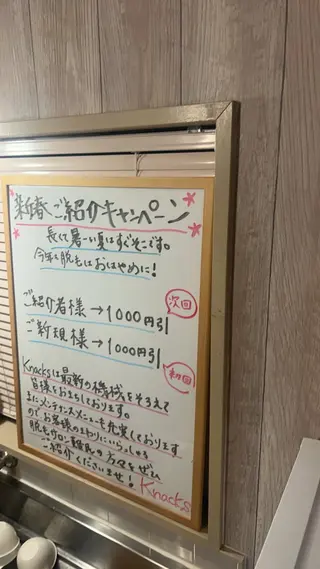 新春ご紹介キャンペーン
長くて暑ーい夏はすぐそこです。
今年も脱毛はおはやめに!
ご紹介者様→1000円引
次回
ご新規様→1000円引
初回
Knacksは最新の機械をそろえて
皆様をお待ちしております。
メンテナンスメニューも充実しております
のでお客様のまわりにいらっしゃる
脱毛サロン難民の方々をぜひ
ご紹介くださいませ!
Knacks